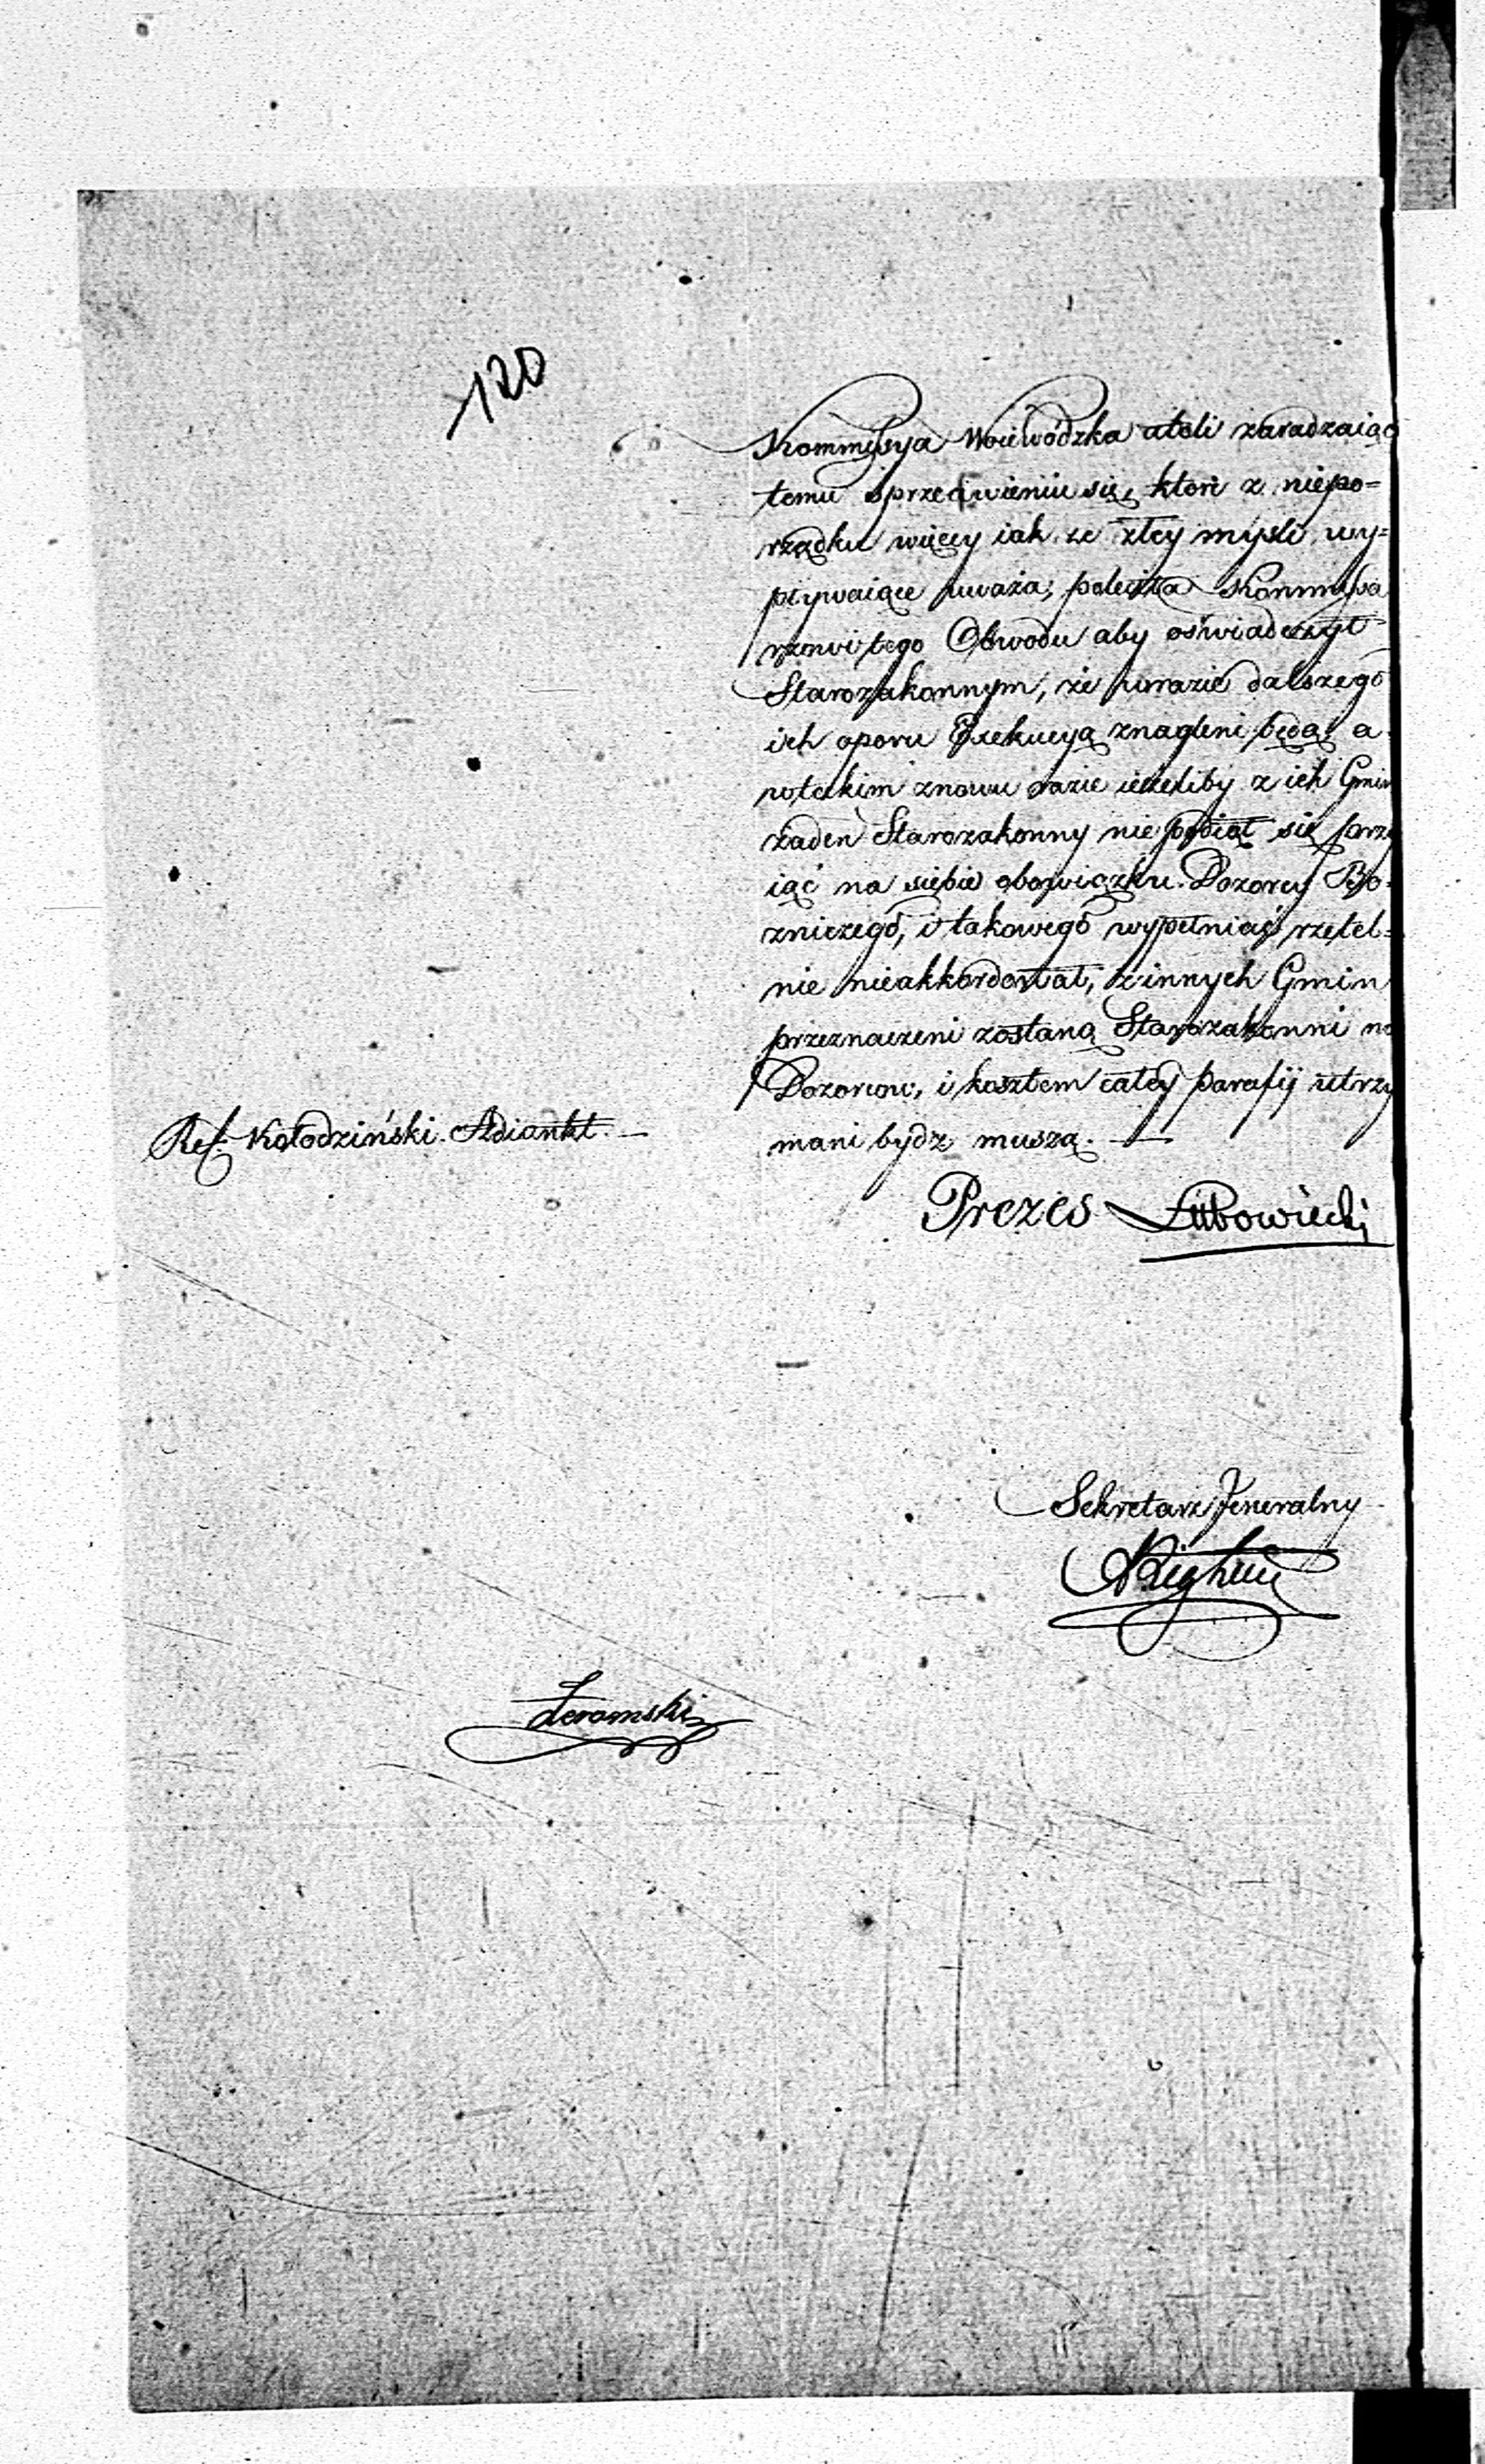 120
Kommissya Woiewódzka atoli zaradzaiąc
temu sprzeciwieniu się, które z niepo=
rządku więcey iak ze złey myśli wy=
pływaiące uważa; poleciła Kommissa
rzowi tego Obwodu aby oświadczył
Starozakonnym, że w razie dalszego
ich oporu Exekucyą znagleni będą, a
w takim znowu razie ieżeliby z ich Gmin
żaden Starozakonny nie podiął się przy
iąć na siebie obowiązku Dozorcy Bo=
zniczego, i takowego wypełniać rzetel=
nie nieakkordował, z innych Gmin
przeznaczeni zostaną Starozakonni na
Dozorców, i kosztem całey parafij utrzy
mani bydz muszą. —
Ref. Kołodziński Adiunkt. —
Prezes Lubowiecki
Sekretarz Jeneralny
Żeromski